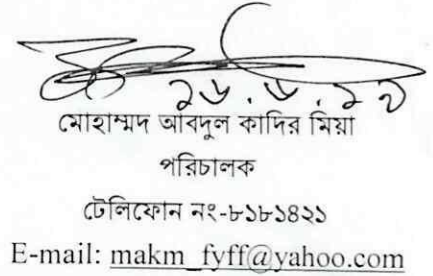 মোহাম্মদ আবদুল কাদির মিয়া
পরিচালক
টেলিফোন নং-৮১৮১৪২১
E-mail: makm_fyff@yahoo.com